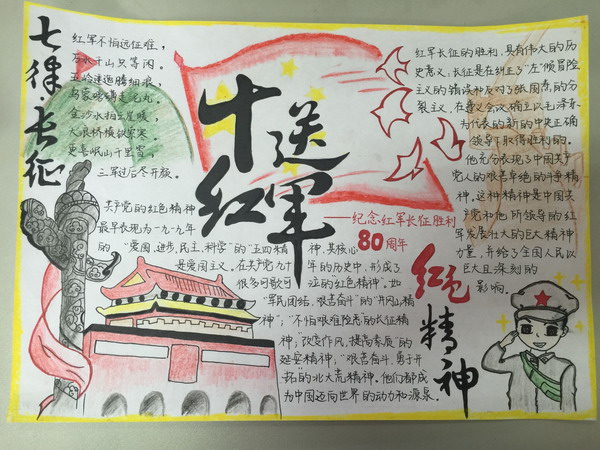 七律·长征
红军不怕远征难,
万水千山只等闲。
五岭逶迤腾细浪,
乌蒙磅礴走泥丸。
金沙水拍云崖暖,
大渡桥横铁索寒。
更喜岷山千里雪,
三军过后尽开颜。
十送
红军
——纪念红军长征胜利
80周年
红军长征的胜利,具有伟大的历
史意义,长征是在纠正了“左”倾冒险
主义的错误和反对了张国焘的分
裂主义,在遵义会议确立以毛泽东
为代表的新的中央正确
领导下取得胜利的。
他充分表现了中国共产
党人的艰苦卓绝的斗争精
神。这种精神是中国共
产党和他所领导的红
军发展壮大的巨大精神
力量,并给了全国人民以
巨大且深刻的
影响。
共产党的红色精神
最早表现为一九一九年
的“爱国、进步、民主、科学”的“五四精
神,其核心
是爱国主义。在共产党九十
年的历史中,形成了
很多可歌可
泣的“红色精神”。如
“军民团结、艰苦奋斗”的“井冈山精
神”;“不怕艰难险恶的长征精
神;改变作风,提高素质”的
延安精神,“艰苦奋斗,勇于开
拓”的北大荒精神。他们都成
为中国迈向世界的动力和源泉。
红色
精神